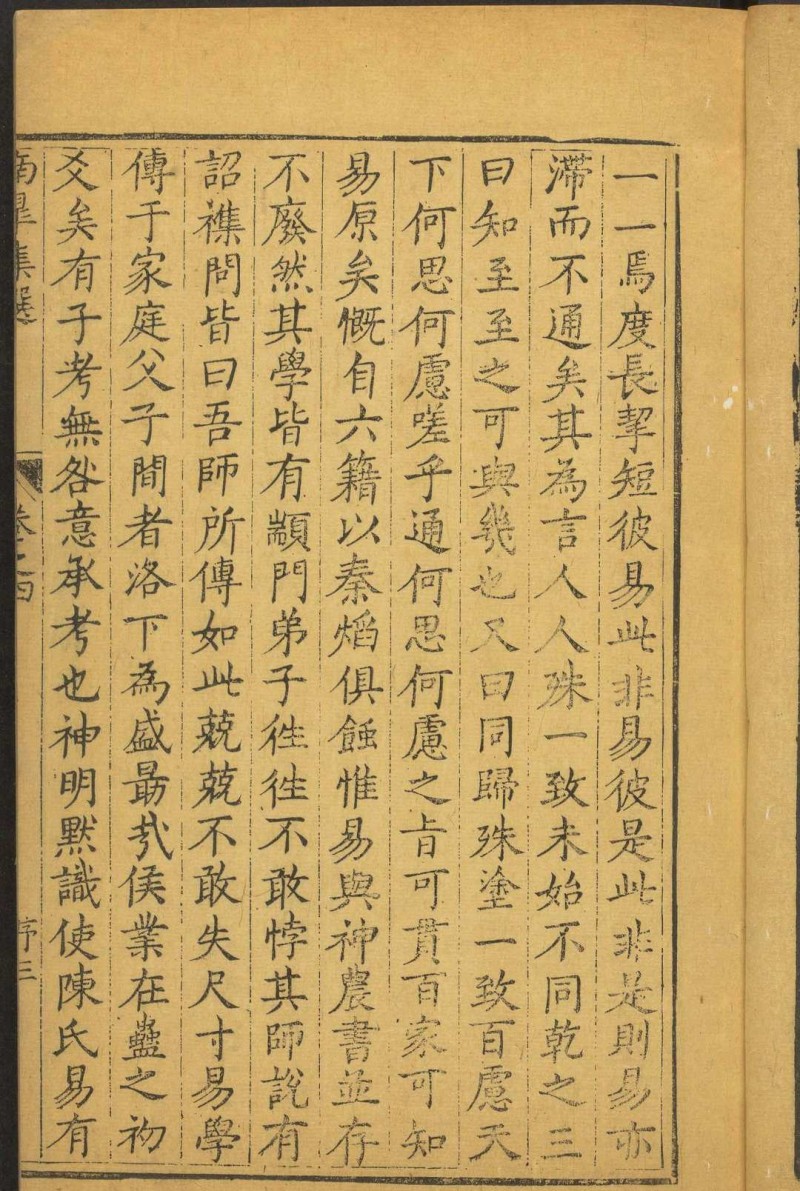 一一焉度長挈短彼易此非易彼是此非是則易亦
滯而不通矣其為言人人殊一致未始不同乾之三
曰知至至之可與幾也又曰同歸殊塗一致百慮天
下何思何慮嗟乎通何思何慮之旨可貫百家可知
易原矣慨自六籍以秦熖俱蝕惟易與神農書並存
不廢然其學皆有顓門弟子徃徃不敢悖其師說有
詔襍問皆曰吾師所傳如此兢兢不敢失尺寸易學
傳于家庭父子間者洛下為盛朂㢤侯業在蠱之初
爻矣有子考無咎意承考也神明默識使陳氏易有
集選
卷之四
序三